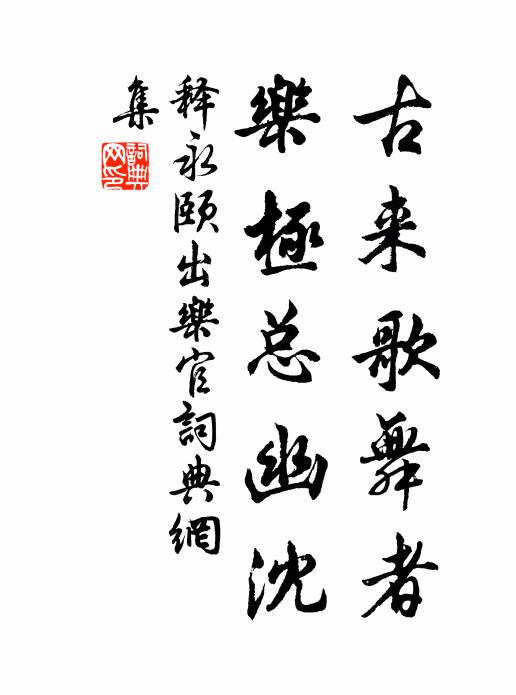 古来歌舞者
樂極总幽沈
释永颐出樂官詞典網
集
詞典
网印